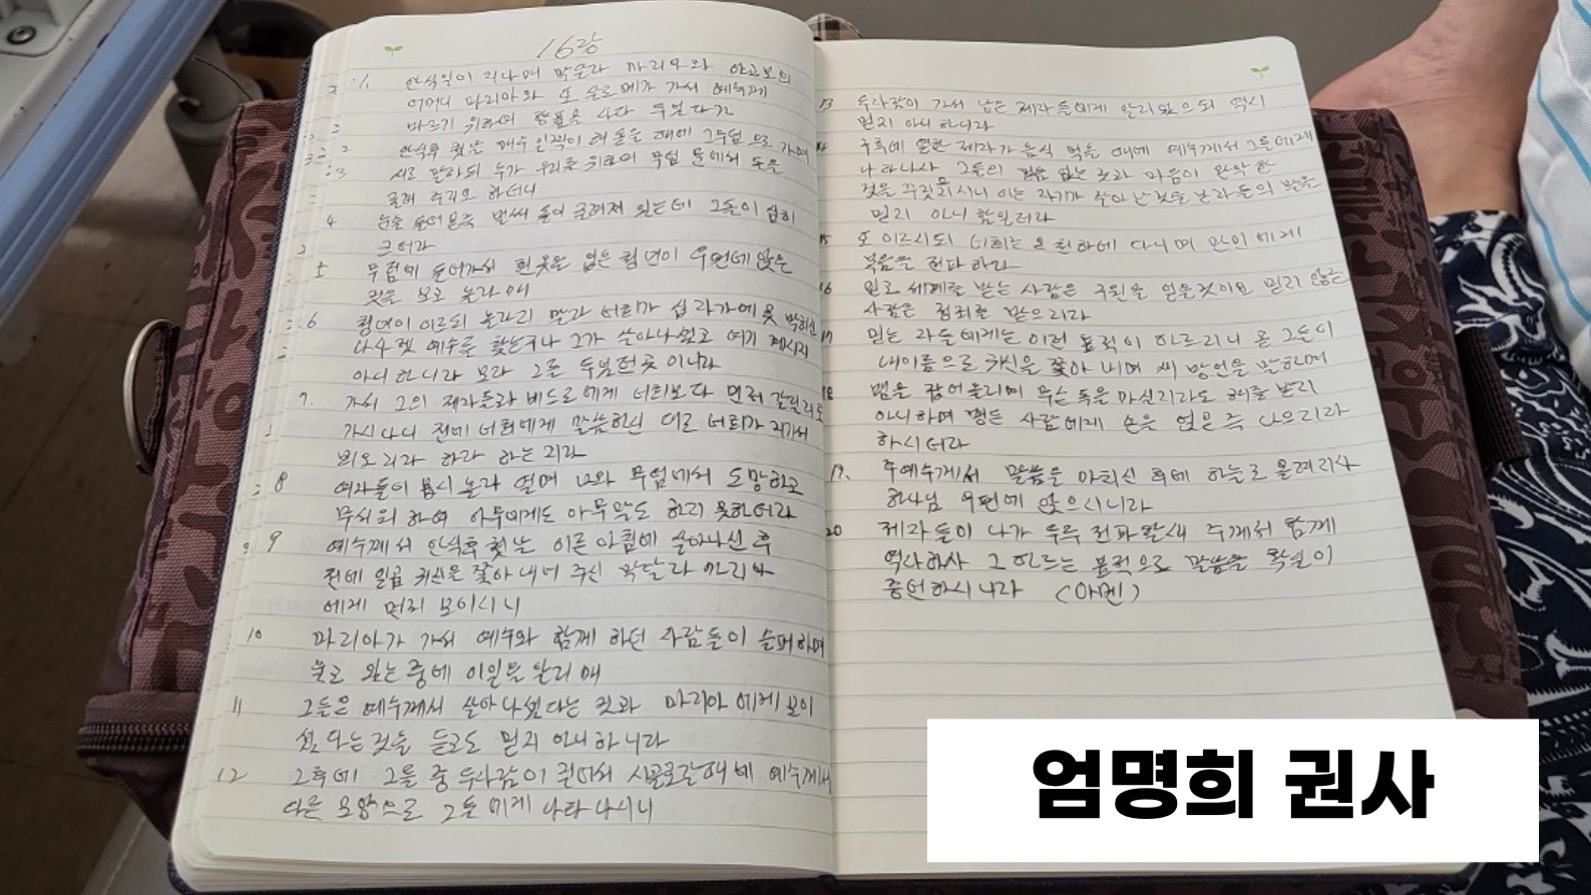 16장
1 안식일이 지나매 막달라 마리아와 야고보의
어머니 마리아와 또 살로메가 가서 예수께
바르기 위하여 향품을 사다 두었다가
2 안식후 첫날 매우 일찍이 해 돋을 때에 그 무덤으로 가며
3 서로 말하되 누가 우리를 위하여 무덤 문에서 돌을
굴려 주리오 하더니
4 눈을 들어본즉 벌써 돌이 굴려져 있는데 그 돌이 심히
크더라
5 무덤에 들어가서 흰 옷을 입은 청년이 우편에 앉은
것을 보고 놀라매
6 청년이 이르되 놀라지 말라 너희가 십자가에 못 박히신
나사렛 예수를 찾는구나 그가 살아나셨고 여기 계시지
아니하니라 보라 그를 두었던 곳이니라
7. 가서 그의 제자들과 베드로에게 너희보다 먼저 갈릴리로
가시나니 전에 너희에게 말씀하신 대로 너희가 거기서
뵈오리라 하라 하는지라
8 여자들이 몹시 놀라 떨며 나와 무덤에서 도망하고
무서워 하여 아무에게도 아무 말도 하지 못하더라
9 예수께서 안식후 첫날 이른 아침에 살아나신 후
전에 일곱 귀신을 쫓아내어 주신 막달라 마리아
에게 먼저 보이시니
10 마리아가 가서 예수와 함께 하던 사람들이 슬퍼하며
울고 있는 중에 이 일을 알리매
11 그들은 예수께서 살아나셨다는 것과 마리아에게 보이
셨다는 것을 듣고도 믿지 아니하니라
12 그 후에 그들 중 두 사람이 걸어서 시골로 갈 때에 예수께서
다른 모양으로 그들에게 나타나시니
13 두 사람이 가서 남은 제자들에게 알리었으되 역시
믿지 아니하니라
14 그 후에 열한 제자가 음식 먹을 때에 예수께서 그들에게
나타나사 그들의 믿음 없는 것과 마음이 완악한
것을 꾸짖으시니 이는 자기가 살아난 것을 본 자들의 말을
믿지 아니함일러라
15 또 이르시되 너희는 온 천하에 다니며 만민에게
복음을 전파하라
16 믿고 세례를 받는 사람은 구원을 얻을 것이요 믿지 않는
사람은 정죄를 받으리라
17 믿는 자들에게는 이런 표적이 따르리니 곧 그들이
내 이름으로 귀신을 쫓아내며 새 방언을 말하며
18 뱀을 집어올리며 무슨 독을 마실지라도 해를 받지
아니하며 병든 사람에게 손을 얹은즉 나으리라
하시더라
19. 주 예수께서 말씀을 마치신 후에 하늘로 올려지사
하나님 우편에 앉으시니라
20 제자들이 나가 두루 전파할새 주께서 함께
역사하사 그 따르는 표적으로 말씀을 확실히
증언하시니라 (아멘)
엄명희 권사